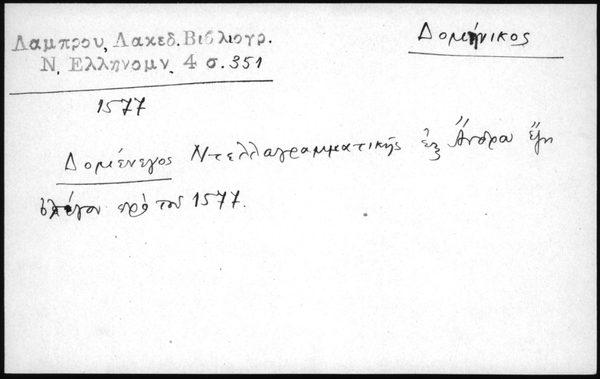 Δομήνικος
Λαμπρου, Λακεδ. Βιβλιογρ.
Ν. Ελληνομν. 4 σ. 351
1577
Δομένεγος Ντελλαγραμματικῆς ἐξ Ἄνδρου ἔζη
ὀλίγον πρὸ τοῦ 1577.